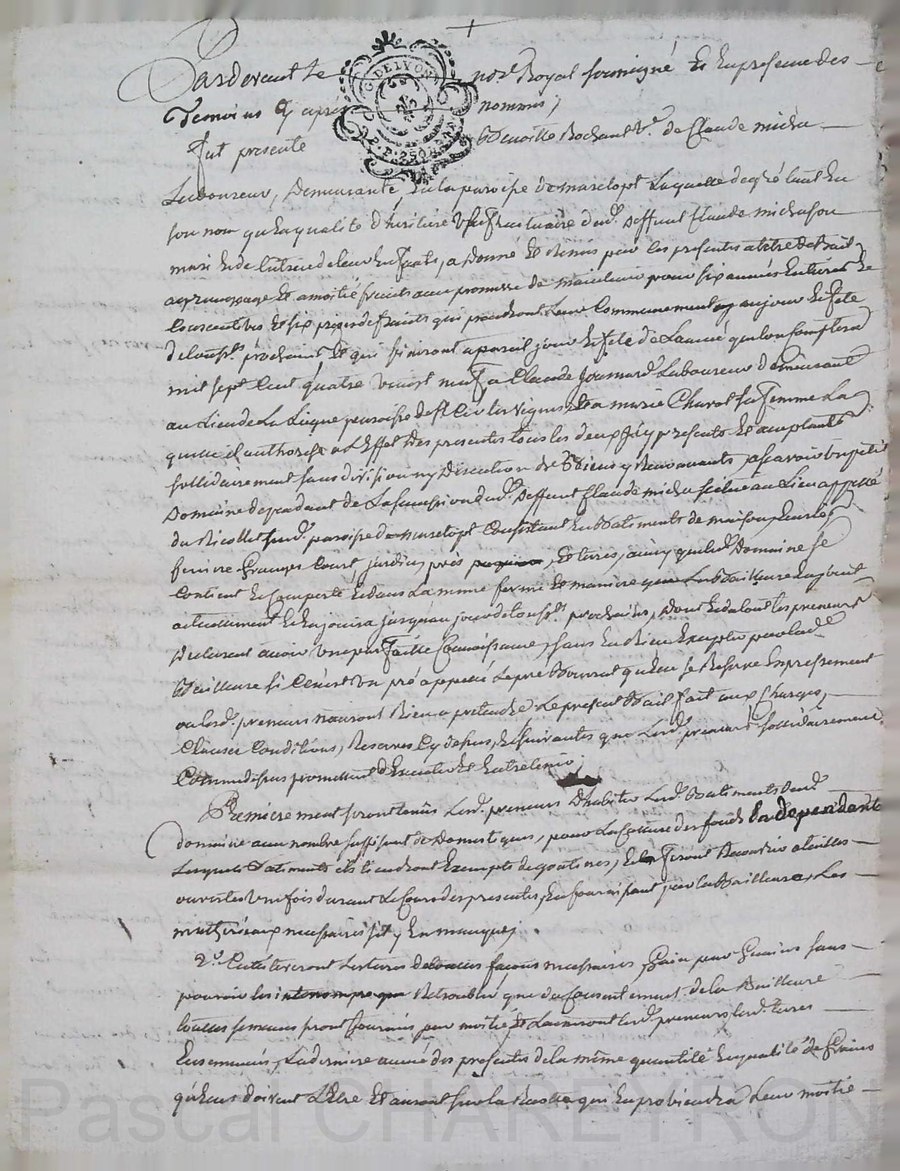 Pardevant le nore. Royal soussigné et en presence des
Temoins Cy après nommés,
G. DE LYON
fut presente Benoitte Rochand ve. de Claude micha
Laboureur, Demeurante en la paroisse de marclopt Laquelle de gré tant en
son nom qu'en qualité d'héritière usufructuaire dud. deffunt Claude micha son
mari et de tutrice de leur enfants, a donné et remis par les presentes a titre de Bail
a grangeage et a moitié fruits avec promesse de maintenir pour six années entières et
consecutives et six prises de fruits qui prendront Leur Commencement au jour et fête
de toussts. prochaine et qui finiront a pareil jour et fête de L'année qu'on Comptera
mil sept Cent quatre vingt neuf a Claude Joumard Laboureur demeurant
au Lieu de La Ligue paroisse de st Cir les vignes et a marie Charet sa femme La
quelle il authorise a L'effet des presentes tous les deux icy presents et acceptants
sollidairement sans division ny discution de Biens y Renonçants, a sçavoir un petit
Domaine dependant de La succession dud. Deffunt Claude micha scitué au Lieu appellé
du Ricollet susd. paroisse de marclopt Consistant en Batiments de maison, Ecuries
feniere Granges Court, jardin, prés, et terres, ainsy que led. Domaine se
Contient et Comporte et dans La même forme et maniere que La Bailleure en jouit
actuellement et en jouira jusqu'au jour de toussts. prochain, dont et du tout les preneurs
declarent avoir une parfaitte Connoissance, sans en Rien Excepter par lade.
Bailleure si Ce n'est un pré appellé Le pré Bourrat qu'elle se Reserve Expressement
ou lesd. preneurs n'auront Rien a pretendre. Le present Bail fait aux Charges,
Clauses Conditions, Reserves Cy dessus, et suivantes que Lesd. preneurs sollidairement
Comme dessus promettent d'Executer et Entretenir,
Premierement seront tenus Lesd. preneurs d'habiter Lesd. Batiments dud.
domaine avec nombre suffisant de Domestiques, pour La Culture des fonds En dependants
Lesquels Batiments ils tiendront Exempts de goutieres, et Feront Recouvrir a tuilles
ouvertes une fois durant Le Cours des presentes, En fournissant par la Bailleure, Les
mathereaux necessaires s'il y En manque,
2o. Cultiveront Les terres de toutes façons necessaires, Grain par Grain sans
pouvoir les Retroubler que du Consentement de la Bailleure
toutes semences seront fournies par moitié et Laisseront Lesd. preneurs lesd. terres
Ensemencés, La derniere année des presentes de la même quantité et qualité de Grains
qu'Elles doivent L'Etre et auront sur la Recolte qui En proviendra Leur moitié
Pascal CHAREYRON